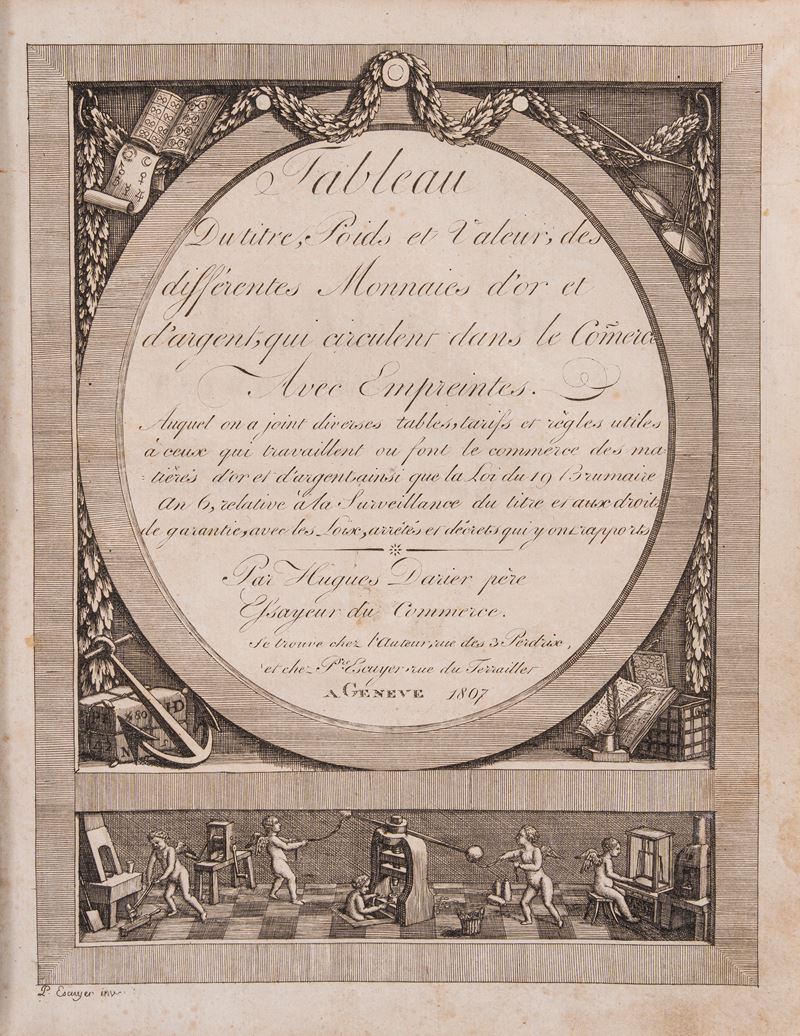 Tableau
Du titre, Poids et Valeur, des
différentes Monnaies d'or et
d'argent, qui circulent dans le Com̃erce
Avec Empreintes.
Auquel on a joint diverses tables, tarifs et règles utiles
à ceux qui travaillent ou font le commerce des ma-
tières d'or et d'argent, ainsi que la Loi du 19 Brumaire
An 6, relative à la Surveillance du titre et aux droits
de garantie, avec les Loix, arrêtés et décrets qui y ont rapports
Par Hugues Darier père
Essayeur du Commerce.
Se trouve chez l'Auteur, rue des 3 Perdrix,
et chez Prre Escuyer rue du Terraillet
A GENEVE 1807
HD
P. Escuyer inv.